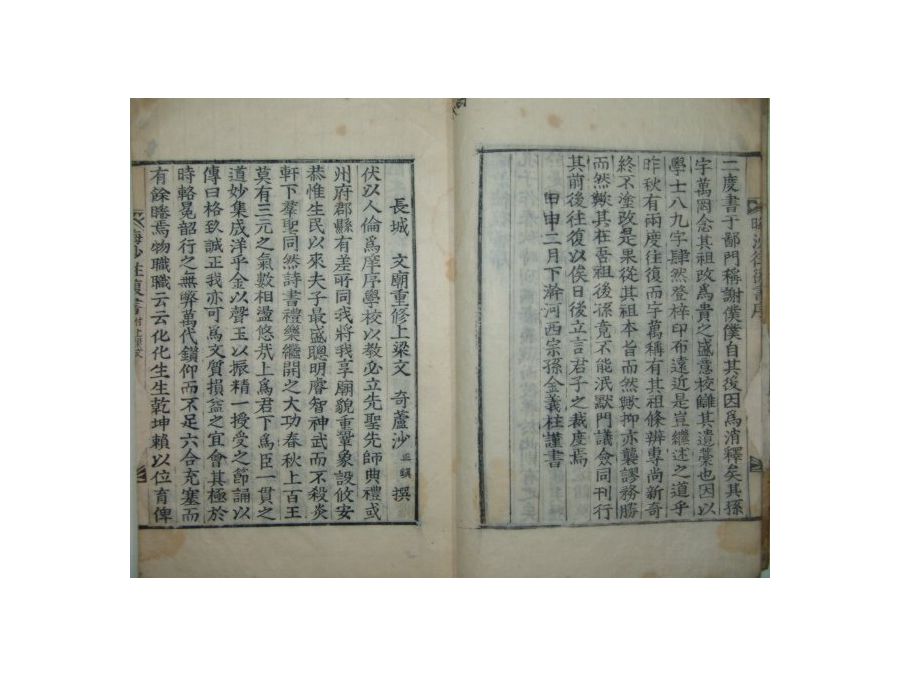 二度書于鄙門稱謝僕僕自其後因爲消釋矣其孫
字萬罔念其祖改爲貴之盛意校讎其遺藁也因以
學士八九字肆然登梓印布遠近是豈繼述之道乎
昨秋有兩度往復而字萬稱有其祖條辨專尚新奇
終不塗改是果從其祖本旨而然歟抑亦襲謬務勝
而然歟其在吾祖後孫竟不能泯默門議僉同刊行
其前後往復以俟日後立言君子之裁度焉
甲申二月下澣河西宗孫金義柱謹書
長城 文廟重修上梁文 奇蘆沙 正鎭 撰
伏以人倫爲庠序學校以教必立先聖先師典禮或
州府郡縣有差所同我將我享廟貌重鞏象設攸安
恭惟生民以來夫子最盛聰明睿智神武而不殺炎
軒下羣聖同然詩書禮樂繼開之大功春秋上百王
莫有三元之氣數相盪悠哉上爲君下爲臣一貫之
道妙集成洋乎金以聲玉以振精一授受之節誦以
傳曰格致誠正我亦可爲文質損益之宜會其極於
時輅冕韶行之無弊萬代鑽仰而不足六合充塞而
有餘瞻焉物職職云云化化生生乾坤賴以位育俾